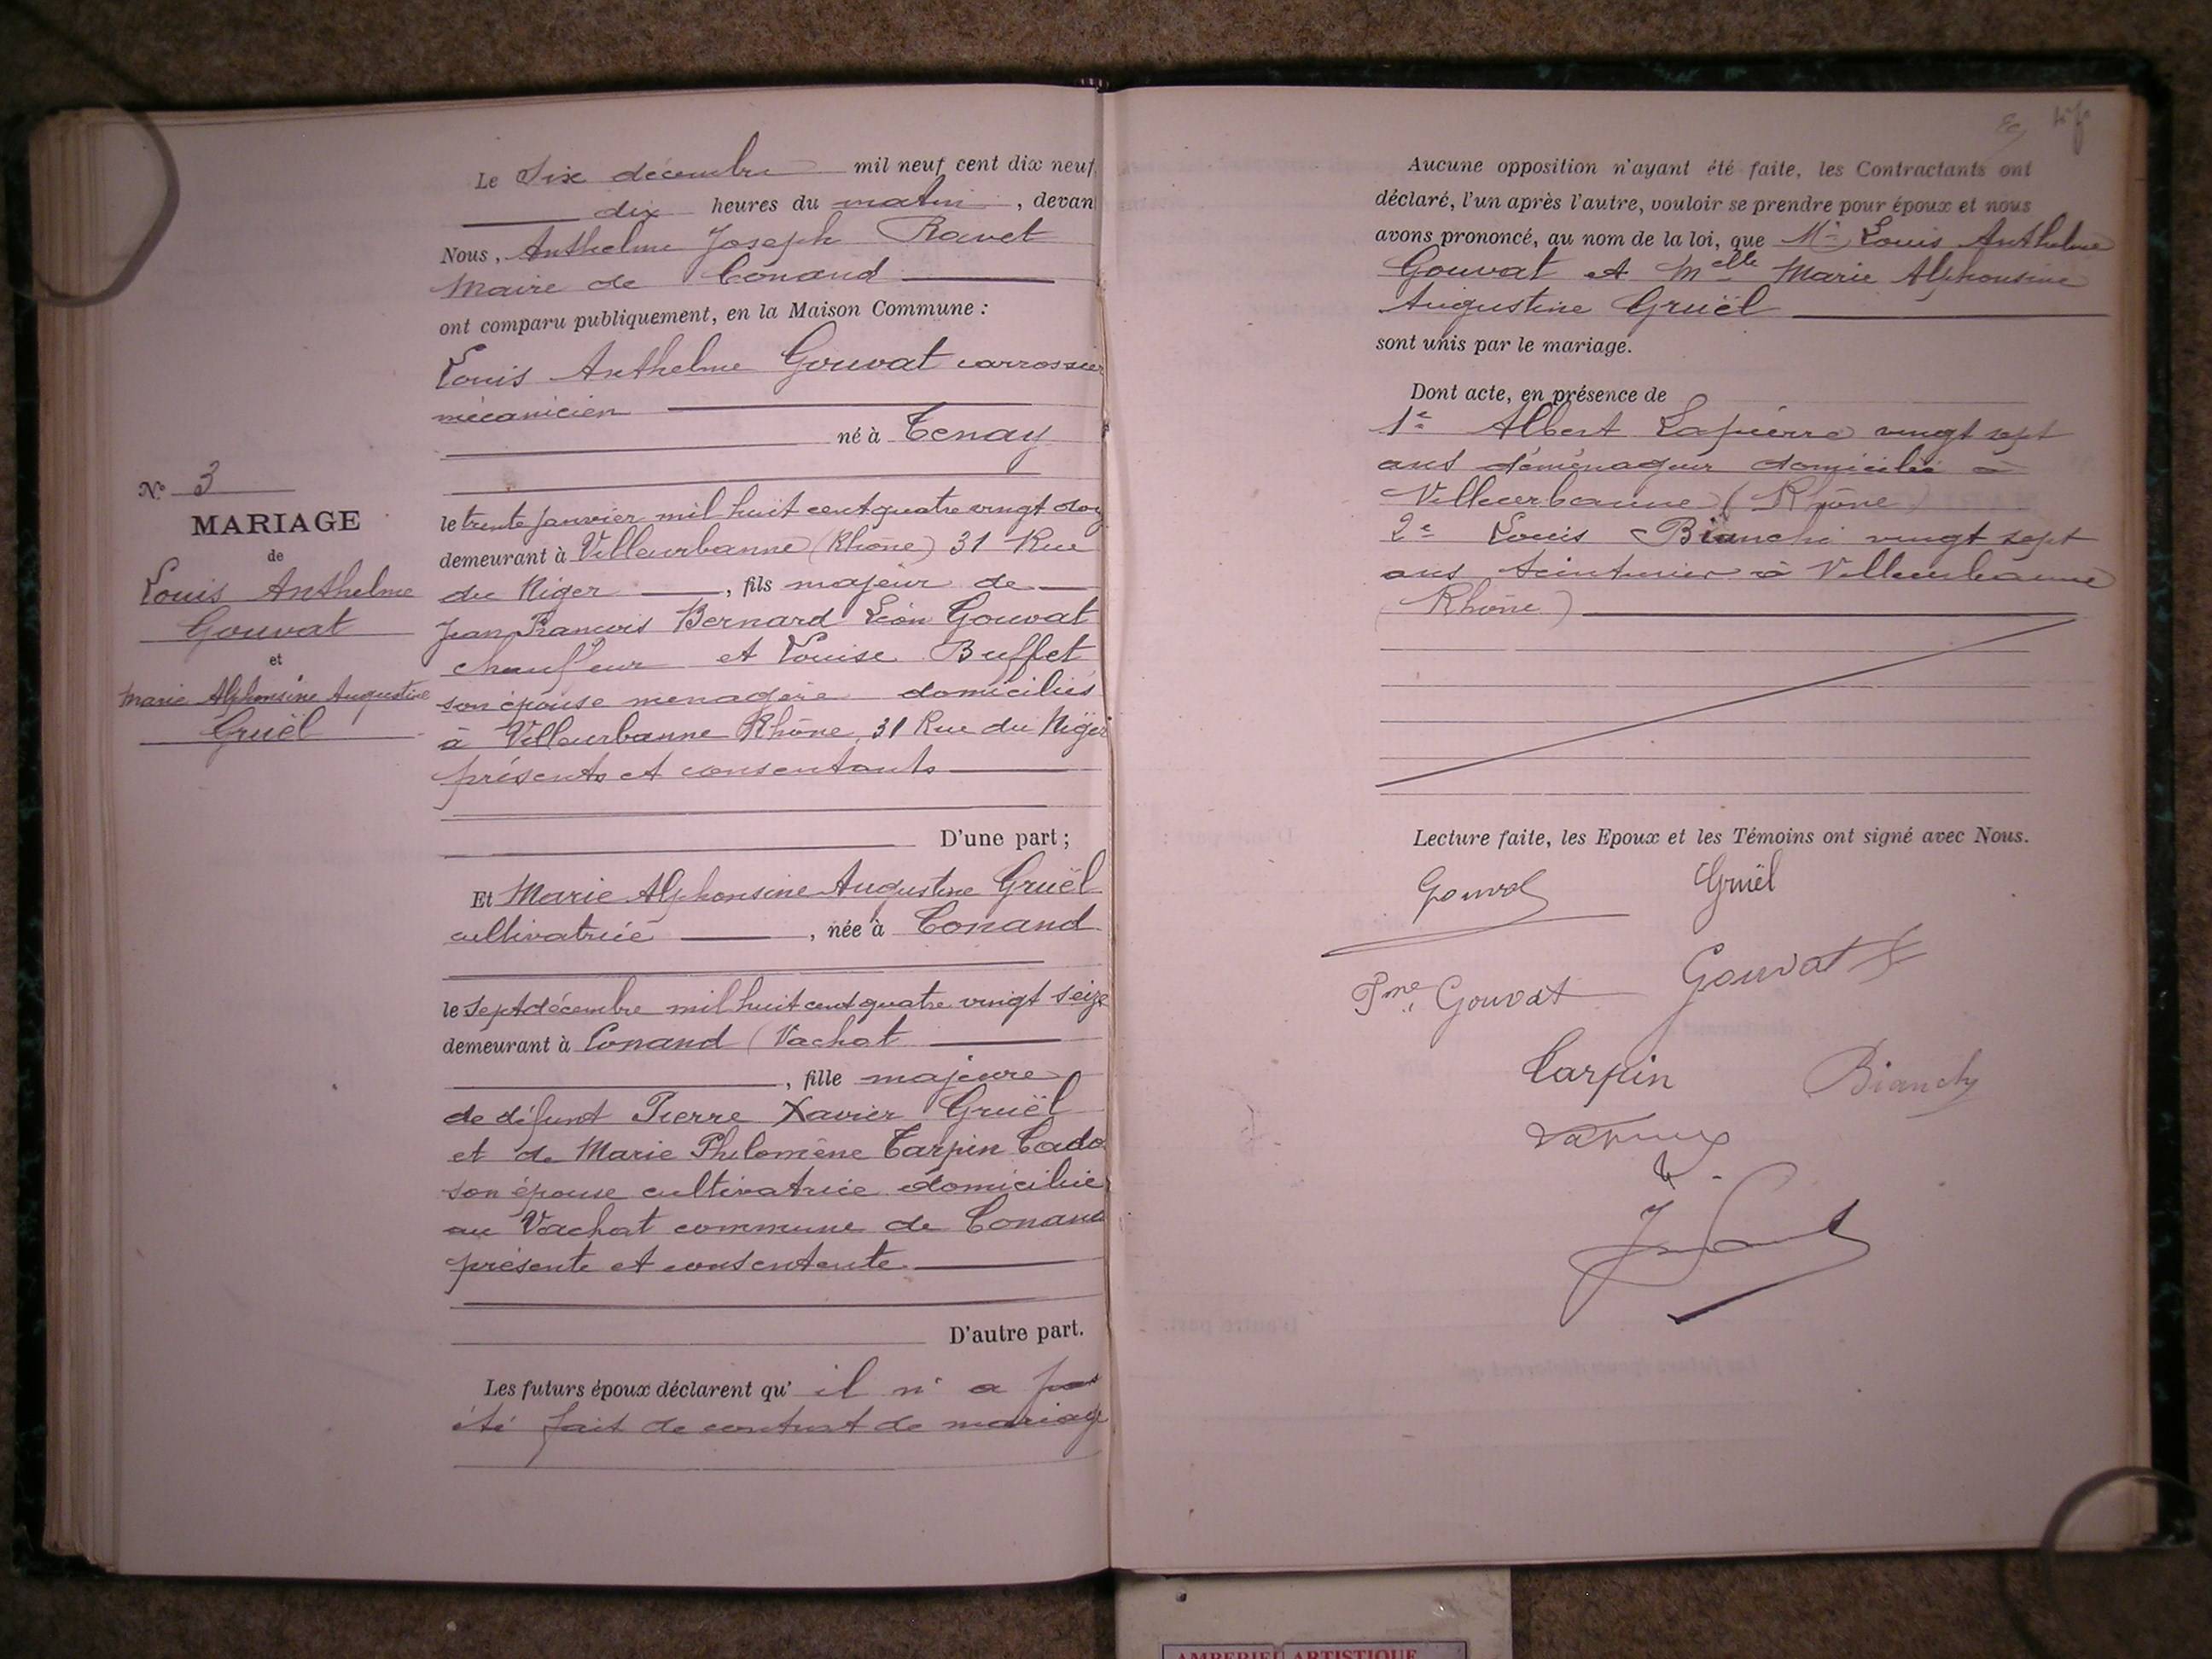 Le Six décembre mil neuf cent dix neuf,
dix heures du matin, devan
Nous, Anthelme Joseph Ravet
Maire de Conand
ont comparu publiquement, en la Maison Commune :
Louis Anthelme Gouvat carrossier
mécanicien
né à Tenay
N° 3
MARIAGE
de
Louis Anthelme
Gouvat
et
Marie Alphonsine Augustine
Gruël
le trente janvier mil huit cent quatre vingt
demeurant à Villeurbanne (Rhône) 31 Rue
du Niger, fils majeur de
Jean François Bernard Léon Gouvat
chauffeur et Louise Buffet
son épouse menagère domiciliés
à Villeurbanne Rhône, 31 Rue du Niger
présents et consentants
D'une part ;
Et Marie Alphonsine Augustine Gruël
cultivatrice, née à Conand
le sept décembre mil huit cent quatre vingt seize
demeurant à Conand (Vachat
, fille majeure
de défunt Pierre Xavier Gruël
et de Marie Philomène Tarpin Cado
son épouse cultivatrice domiciliée
au Vachat commune de Conand
présente et consentante
D'autre part.
Les futurs époux déclarent qu' il n' a pas
été fait de contrat de mariage
Aucune opposition n'ayant été faite, les Contractants ont
déclaré, l'un après l'autre, vouloir se prendre pour époux et nous
avons prononcé, au nom de la loi, que Mr Louis Anthelme
Gouvat et Melle Marie Alphonsine
Augustine Gruël
sont unis par le mariage.
Dont acte, en présence de
1e Albert Lapierre vingt sept
ans déménageur domicilié à
Villeurbanne (Rhône)
2e Louis Bianchi vingt sept
ans teinturier à Villeurbanne
(Rhône)
Lecture faite, les Epoux et les Témoins ont signé avec Nous.
Gouvat Gruël
Gouvat Gouvat
Tarpin Bianchy
AMBERIEU ARTISTIQUE